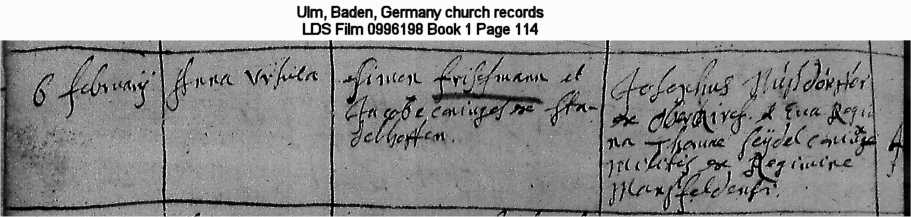 Ulm, Baden, Germany church records
LDS Film 0996198 Book 1 Page 114
6 februarij
Anna Ursula
Simon frischmann et
Jacobe coniuges ex Sta-
delhoffen.
Josephus
ex Oberkirch. & Eua Regi
na Thomæ Seÿdel coniûx
militis ex Regimine
Mansfeldensi.